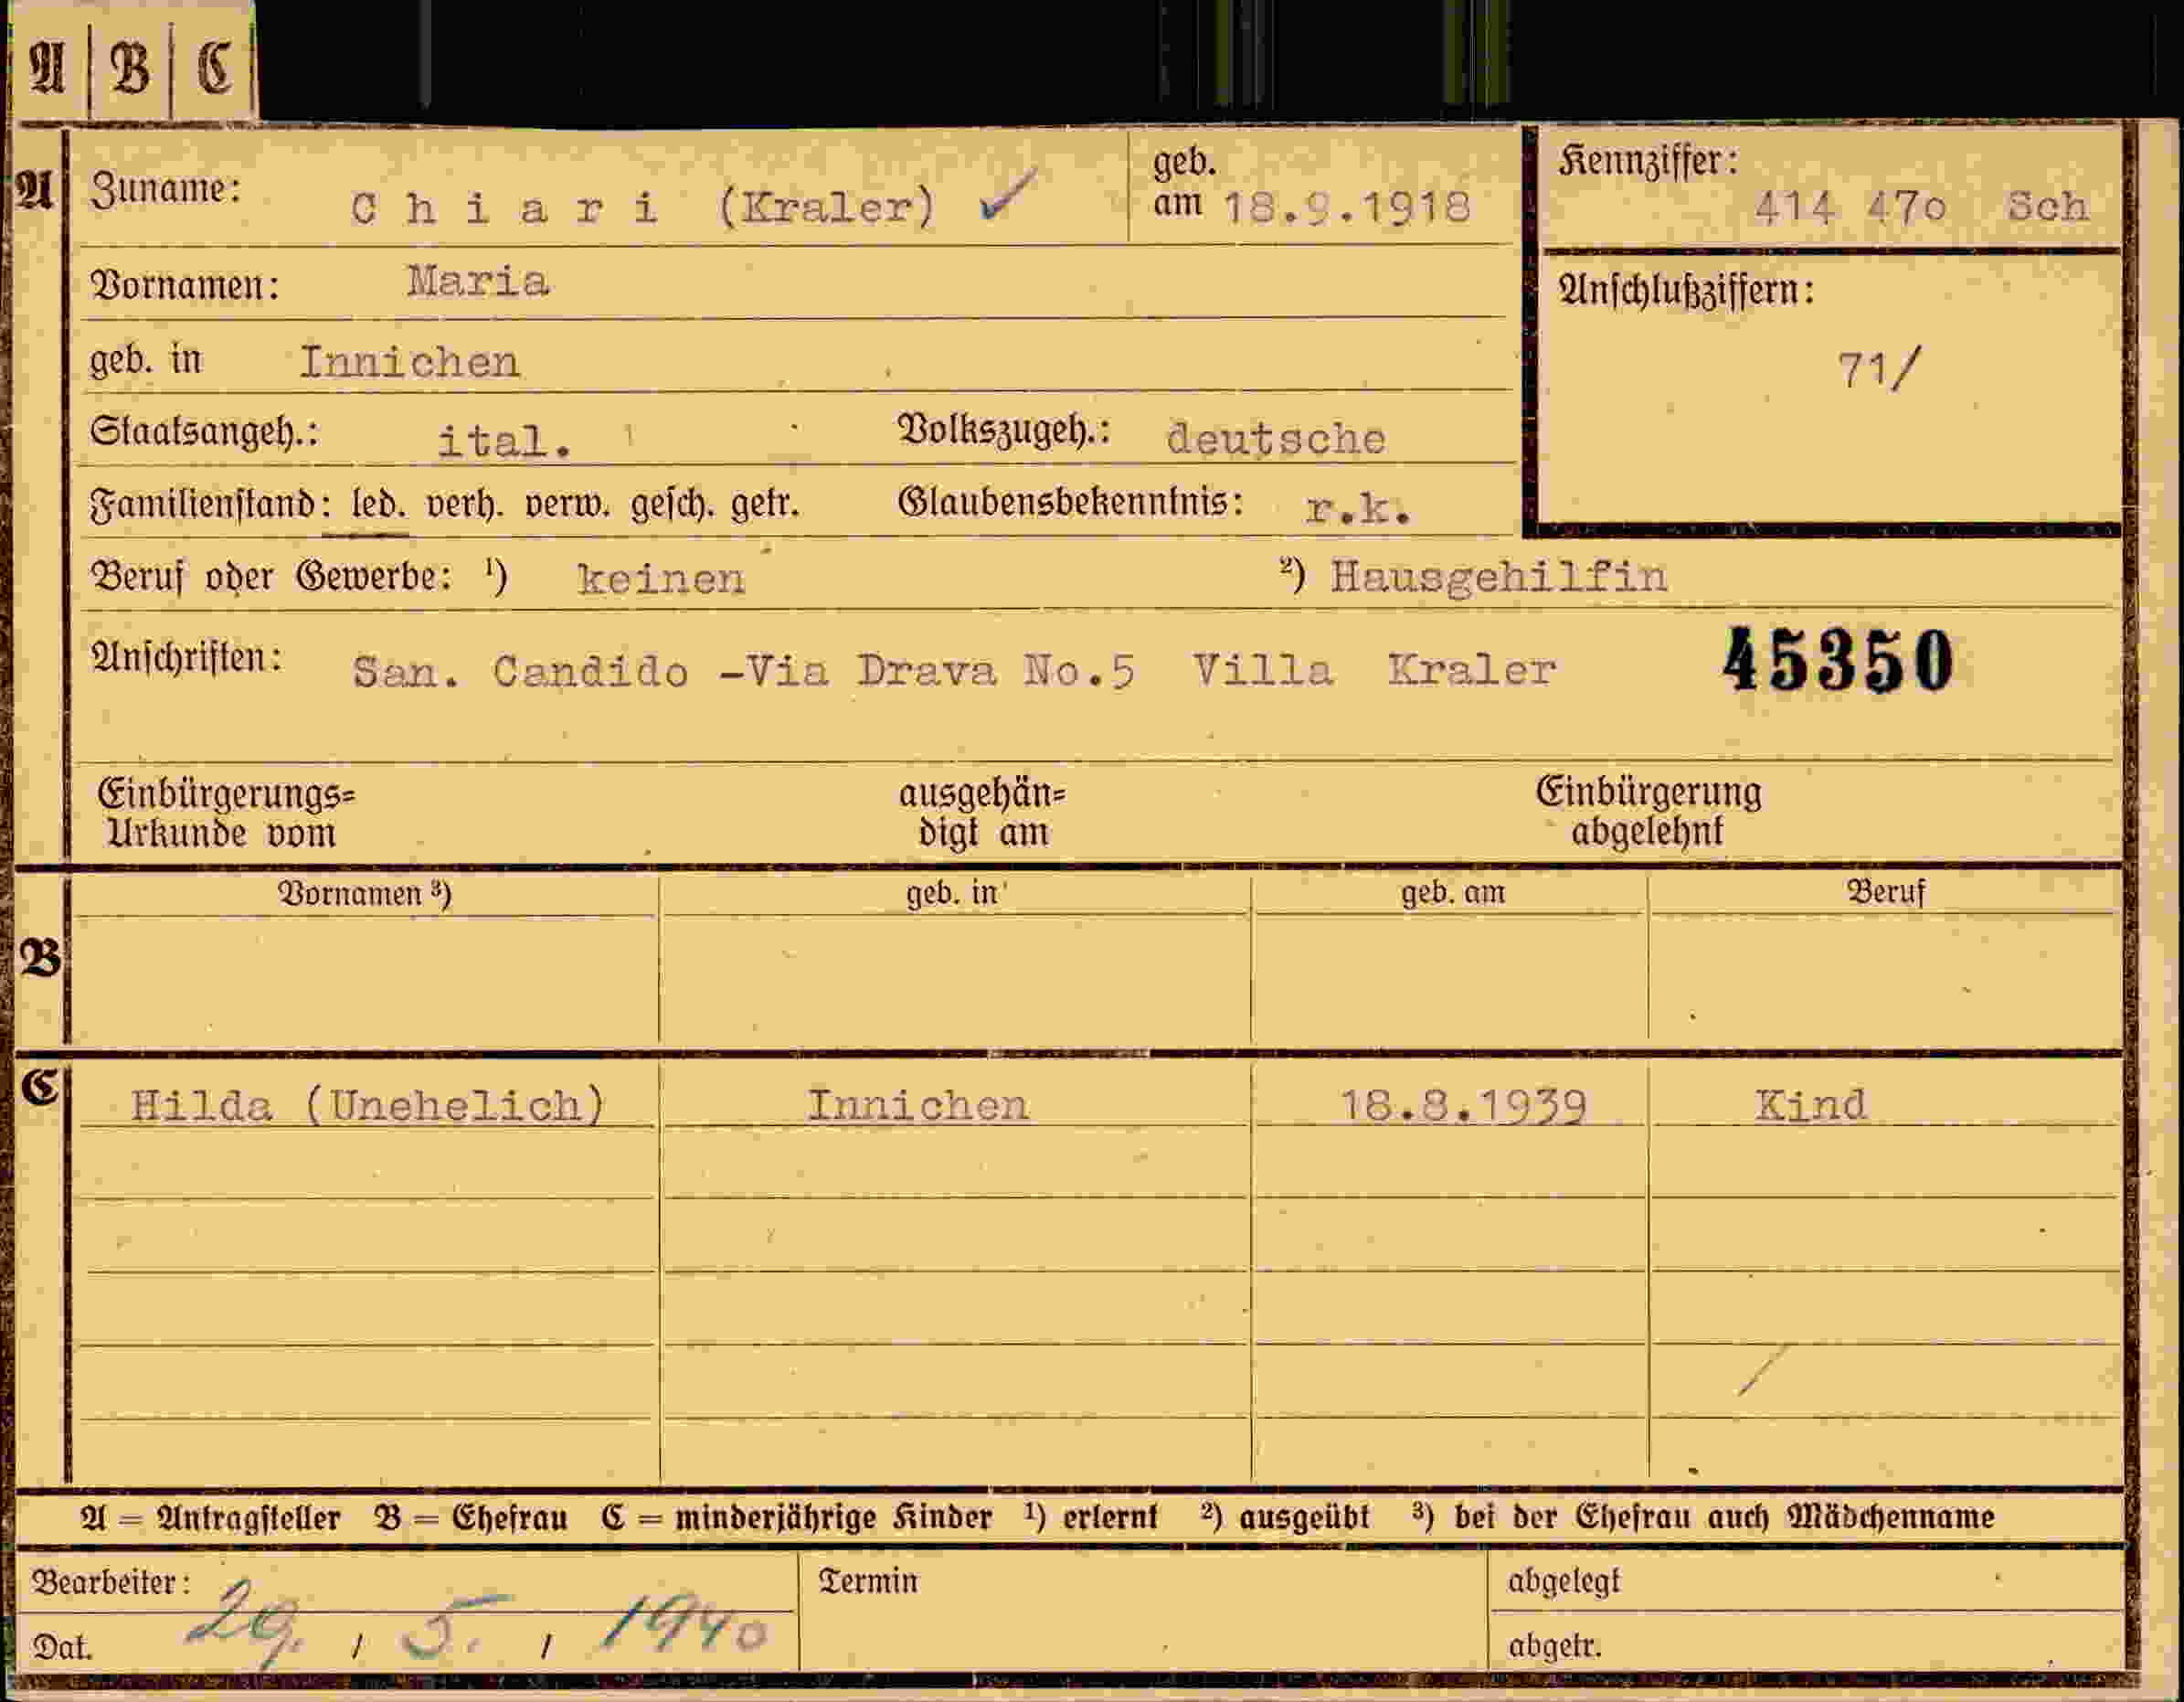 A B C
A Zuname: Chiari (Kraler) ✓ geb. am 18.9.1918
Kennziffer: 414 47o Sch
Vornamen: Maria
Anschlußziffern: 71/
geb. in Innichen
Staatsangeh.: ital. Volkszugeh.: deutsche
Familienstand: led. verh. verw. gesch. getr. Glaubensbekenntnis: r.k.
Beruf oder Gewerbe: ¹) keinen ²) Hausgehilfin
Anschriften: San. Candido -Via Drava No.5 Villa Kraler 45350
Einbürgerungs= ausgehän= Einbürgerung
Urkunde vom digt am abgelehnt
Vornamen ³) geb. in geb. am Beruf
B
C Hilda (Unehelich) Innichen 18.8.1939 Kind
A = Antragsteller B = Ehefrau C = minderjährige Kinder ¹) erlernt ²) ausgeübt ³) bei der Ehefrau auch Mädchenname
Bearbeiter: Termin abgelegt
Dat. 29. / 5. / 1940 abgetr.